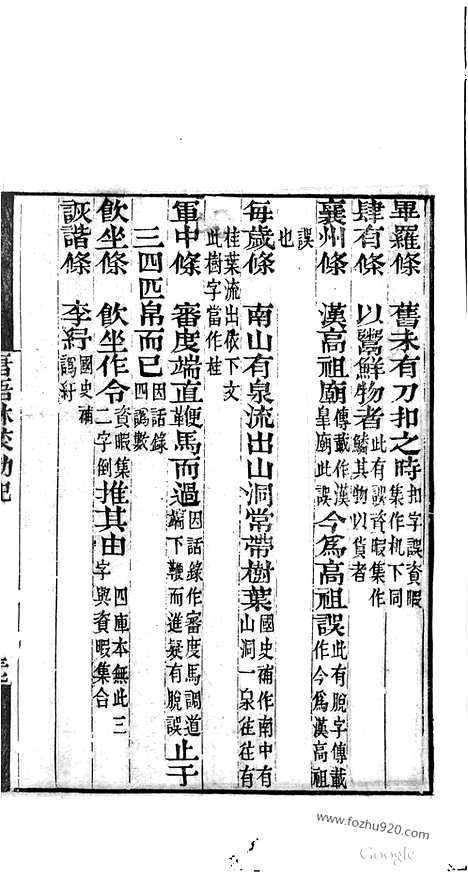 畢羅條　舊未有刀扣之時扣字誤資暇集作机下同
肆有條　以鬻鮮物者此有誤資暇集作鱗其物以貨者
襄州條　漢高祖廟傳載作漢皇廟此誤今爲高祖誤此有脫字傳載作今爲漢高祖
誤也
每歲條　南山有泉流出山洞常帶樹葉國史補作南中有山洞一泉往往有
桂葉流出依下文此樹字當作桂
軍中條　審度端直鞭馬而過因話錄作審度馬調道端下鞭而進疑有脫誤止于
三四匹帛而已因話錄四譌數
飲坐條　飲坐作令資暇集二字倒推其由四庫本無此三字與資暇集合
詼諧條　李紓國史補譌紆
唐語林校勘記
www.fozhu920.com
Google